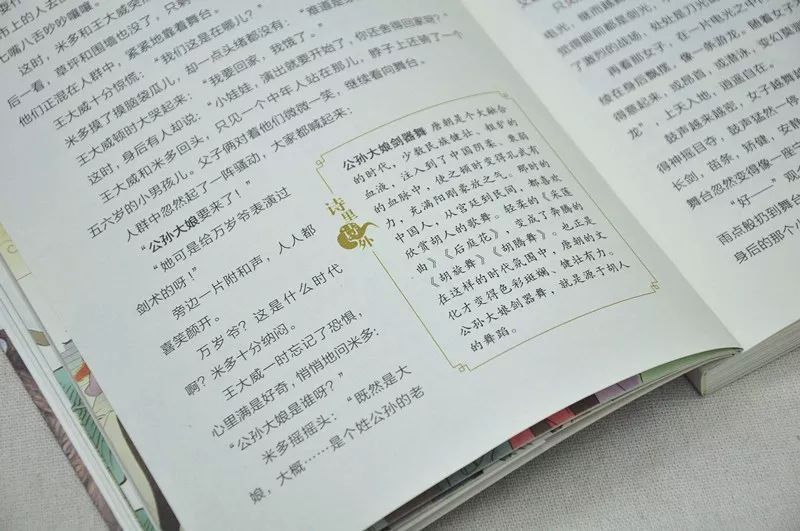 市上的人去
七嘴八舌吵嚷嚷。
这时，米多和王大威突
后一看，草坪和围墙也没了，只
他们正混在人群中，紧紧地靠着舞台。
王大威十分惊慌：“我们这是在那儿？”
米多摸了摸脑袋瓜儿，却一点头绪都没有：“难道是
王大威顿时大哭起来：“我要回家，我饿了。”
这时，身后有人却说：“小娃娃，演出就要开始了，你还舍得回家呢？
王大威和米多回头，只见一个中年人站在那儿，脖子上还骑了一个
五六岁的小男孩儿。父子俩对着他们微微一笑，继续看向舞台。
人群中忽然起了一阵骚动，大家都喊起来：
“公孙大娘要来了！”
“她可是给万岁爷表演过
剑术的呀！”
旁边一片附和声，人人都
喜笑颜开。
万岁爷？这是什么时代
啊？米多十分纳闷。
王大威一时忘记了恐惧，
心里满是好奇，悄悄地问米多：
“公孙大娘是谁呀？”
米多摇摇头：“既然是大
娘，大概……是个姓公孙的老
诗里诗外
公孙大娘剑器舞 唐朝是个大融合
的时代，少数民族健壮、粗犷的
血液，注入到了中国阴柔、衰弱
的血脉中，使之顿时变得孔武有
力，充满阳刚豪放之气。那时的
中国人，从宫廷到民间，都喜欢
欣赏胡人的歌舞。轻柔的《采莲
曲》《后庭花》，变成了奔腾的
《胡旋舞》《胡腾舞》。也正是
在这样的时代氛围中，唐朝的文
化才变得色彩斑斓、健壮有力。
公孙大娘剑器舞，就是源于胡人
的舞蹈。
电光，继而越
觉得眼前都是剑光，
了激烈的战场，处处是刀光
再看那女子，在一片电光之中
续在身后飘摆，像一条游龙。随着女子
得飘起来，或昂首，或潜泳，变幻莫
龙”，上天入地，逍遥自在。
鼓声越来越密，女子越舞越
得神摇目夺，鼓声猛然一停
长剑，苗条，矫健，安静
舞台忽然变得像一座
“好——”观
雨点般扔到舞台
身后的那个